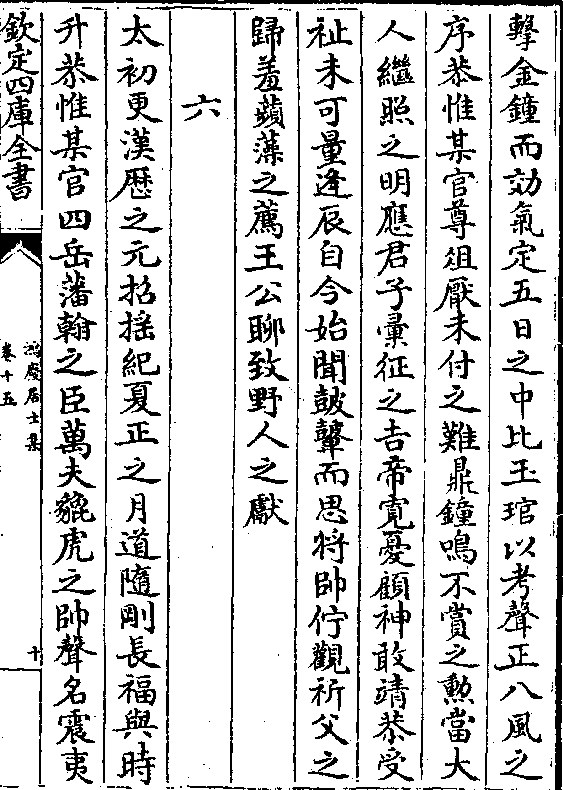 擊金鐘而効氣定五日之中比玉琯以考聲正八風之
序恭惟某官尊俎厭未付之難鼎鐘鳴不賞之勲當大
人繼照之明應君子彙征之吉帝寛憂顧神敢靖恭受
祉未可量逢辰自今始聞皷鼙而思將帥佇觀祈父之
歸羞蘋藻之薦王公聊致野人之獻
六
太初更漢歴之元招揺紀夏正之月道隨剛長福與時
升恭惟某官四岳藩翰之臣萬夫貔虎之帥聲名震夷
欽定四庫全書
鴻慶居士集
卷十五
十